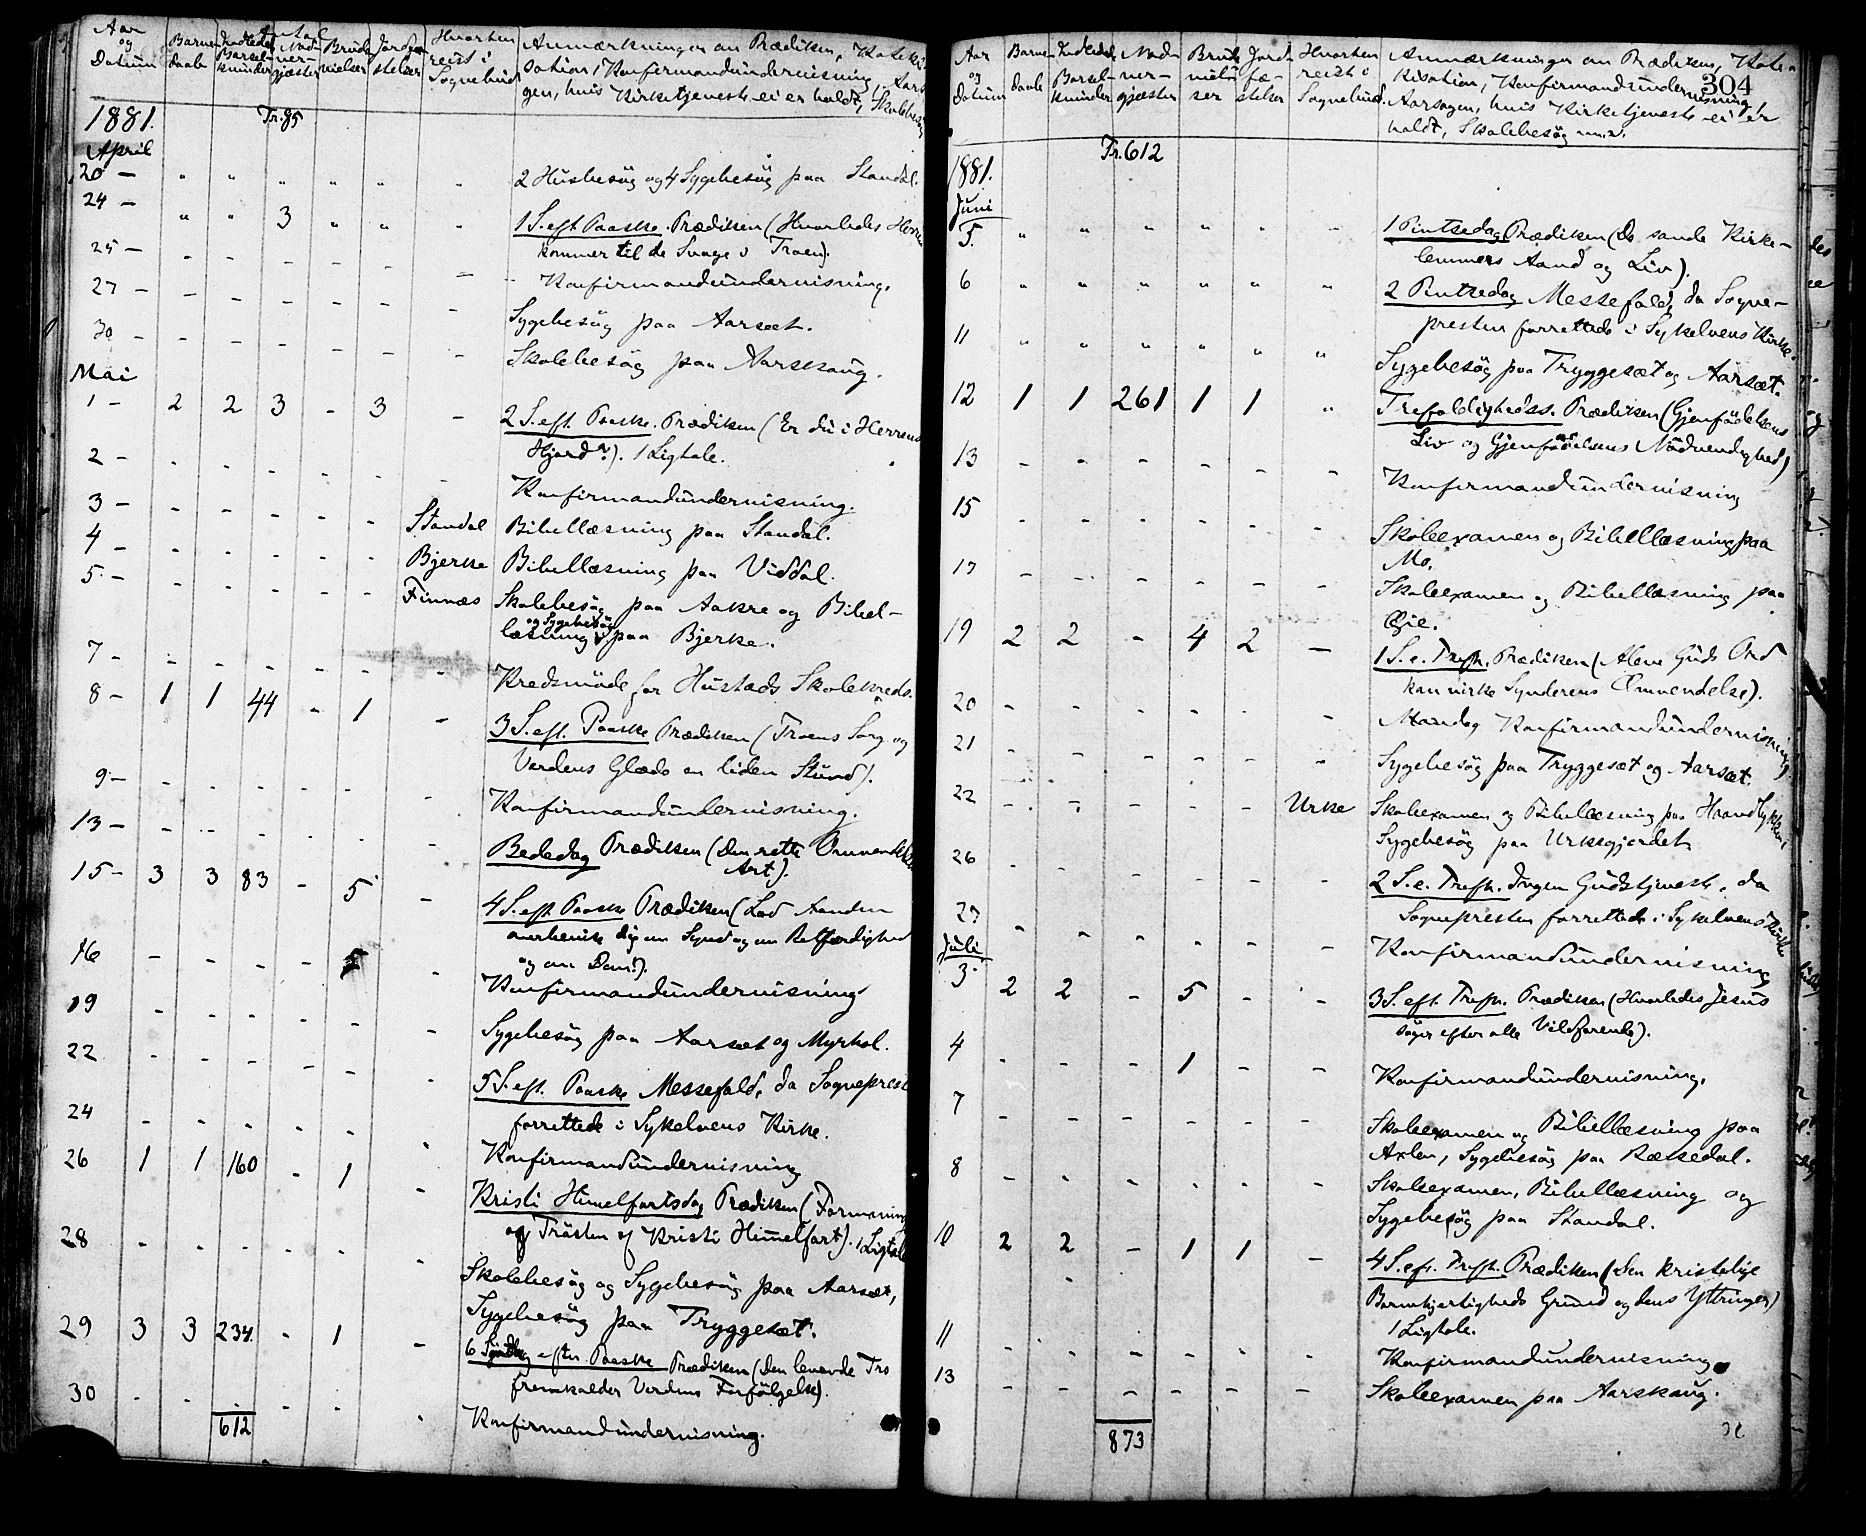 Aar og Datum | Barnedaab | Indledede Barselkvinder | Antal Nadvergjæster | Brudevielser | Jordfæstelser | Hvorhen reist i Sognebud | Anmærkninger om Prædiken, Katekisation, Konfirmandundervisning, Aarsagen, hvis Kirketjeneste ei er holdt, Skolebesøg
1881. Tr. 85
April
20 — " " " " " " 2 Husbesøg og 4 Sygebesøg paa Standal.
24 — " " 3 " " " 1 S. eft. Paaske. Prædiken (Hvorledes Herren
kommer til de Svage i Troen).
25 — - - - - - - Konfirmandundervisning.
27 — - - - - - - Sygebesøg paa Aarsæt.
30 — - - - - - - Skolebesøg paa Aarskaug.
Mai
1 - 2 2 3 - 3 - 2 S. eft. Paaske. Prædiken (Er du i Herrens
Hjord?). 1 Ligtale.
2 - - - - - - - Konfirmandundervisning.
3 - - - - - - Standal Bibellæsning paa Standal.
4 - - - - - - Bjerke Bibellæsning paa Viddal.
5 - - - - - - Finnæs Skolebesøg paa Aakre og Bibel-
læsning og Sygebesøg paa Bjerke.
7 - - - - - - - Kredsmøde for Hustads Skolekreds.
8 - 1 1 44 - 1 - 3 S. eft. Paaske Prædiken (Troens Sorg og
Verdens Glæde en liden Stund).
9 - - - - - - - Konfirmandundervisning.
13 - - - - - - - Bededag Prædiken (Den rette Omvendelses
Art).
15 - 3 3 83 - 5 - 4 S. eft. Paaske Prædiken (Lad Aanden
overbevise dig om Synd og om Retfærdighed
og om Dom!).
16 - - - - - - Konfirmandundervisning
19 - - - - - - Sygebesøg paa Aarsæt og Myrhol.
22 - - - - - - 5 S. eft. Paaske Messefald, da Sognepresten
forrettede i Sykelvens Kirke.
24 - - - - - - Konfirmandundervisning
26 1 1 160 - 1 - Kristi Himmelfartsdag Prædiken (Formaning
og Trøsten af Kristi Himmelfart). 1 Ligtale
28 - - - - - - Skolebesøg og Sygebesøg paa Aarsæt,
Sygebesøg paa Tryggesæt.
29 3 3 234 - 1 - 6 Søndag efter Paaske Prædiken (Den levende Tro
fremkalder Verdens Forfølgelse).
30 - - - - - - Konfirmandundervisning.
612
304
Aar og Datum | Barnedaab | Indledede Barselkvinder | Nadvergjæster | Brudevielser | Jordfæstelser | Hvorhen reist i Sognebud | Anmærkninger om Prædiken, Katekisation, Konfirmandundervisning, Aarsagen, hvis Kirketjeneste ei er holdt, Skolebesøg m.v.
Tr. 612
1881.
Juni
5. " " " " " " 1 Pintsedag Prædiken (De sande Kirke-
lemmers Aand og Liv).
6 " " " " " " 2 Pintsedag Messefald, da Sogne-
presten forrettede i Sykelvens Kirke.
11 " " " " " " Sygebesøg paa Tryggesæt og Aarsæt.
12 1 1 261 1 1 " Trefoldighedss. Prædiken (Gjenfødelsens
Liv og Gjenfødelsens Nødvendighed)
13 - - - - - - Konfirmandundervisning
15 - - - - - - Skoleexamen og Bibellæsning paa
Mo.
17 - - - - - - Skoleexamen og Bibellæsning paa
Øie.
19 2 2 - 4 2 - 1 S. e. Trefh. Prædiken (Alene Guds Ord
kan virke Synderens Omvendelse).
20 - - - - - - Mandag Konfirmandundervisning
21 - - - - - - Sygebesøg paa Tryggesæt og Aarsæt.
22 - - - - - Urke Skoleexamen og Bibellæsning paa Haandlykken,
Sygebesøg paa Urkegjerdet
26 - - - - - - 2 S. e. Trefh. Ingen Gudstjeneste, da
Sognepresten forrettede i Sykelvens Kirke
27 - - - - - - Konfirmandundervisning
Juli
3. 2 2 - 5 - - 3 S. eft. Trefh. Prædiken (Hvorledes Jesus
søger efter alle Vildfarende).
4 - - - 1 - - Konfirmandundervisning.
7 - - - - - - Skoleexamen og Bibellæsning paa
Axlen, Sygebesøg paa Ræssedal.
8 - - - - - - Skoleexamen, Bibellæsning og
Sygebesøg paa Standal.
10 2 2 - 1 1 - 4 S. eft. Trefh. Prædiken (Den kristelige
Barmhjertigheds Grund og dens Yttringer)
1 Ligtale.
11 - - - - - - Konfirmandundervisning
13 - - - - - - Skoleexamen paa Aarskaug.
873